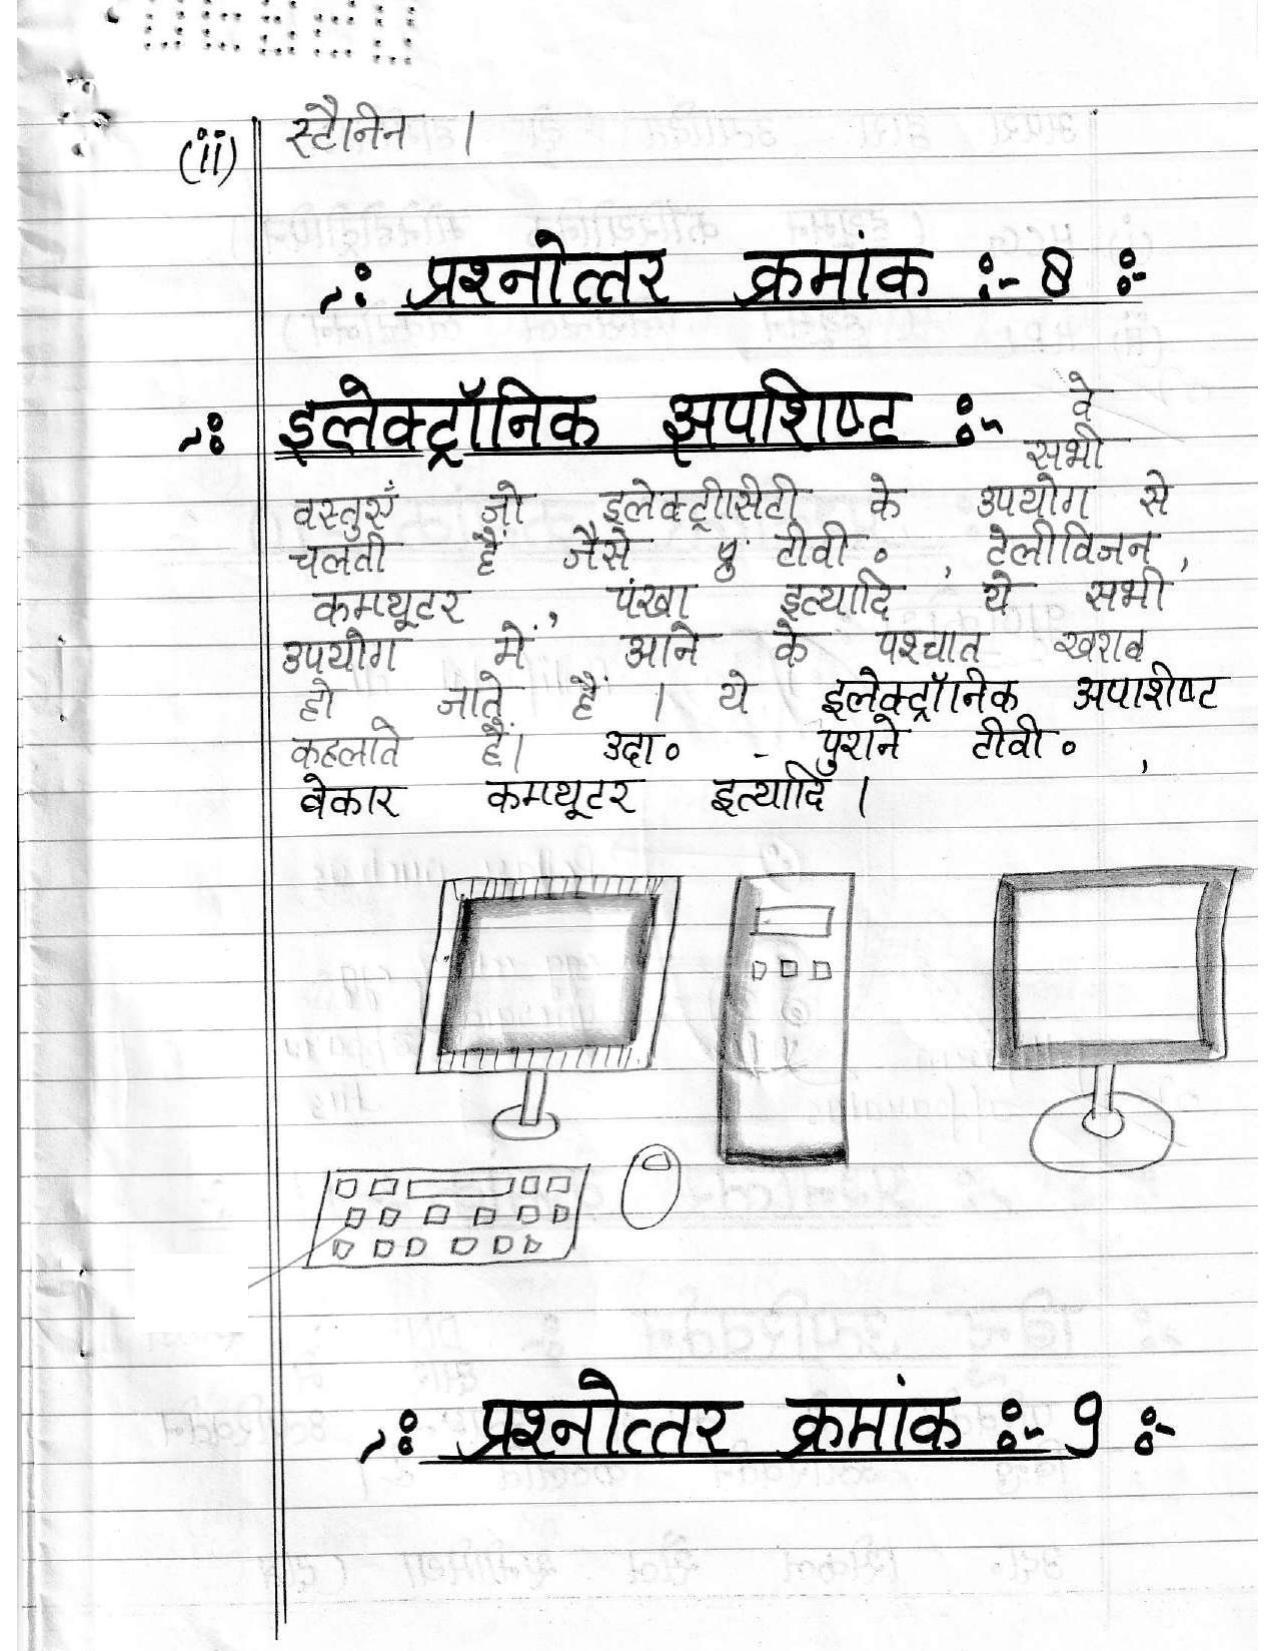 (ii) स्टैनिन ।
~: प्रश्नोत्तर क्रमांक :- 8 :-
~: इलेक्ट्रॉनिक अपशिष्ट :- वे
सभी
वस्तुएँ जो इलेक्ट्रीसिटी के उपयोग से
चलती हैं जैसे टीवी॰ , टेलीविजन ,
कम्प्यूटर , पंखा इत्यादि ये सभी
उपयोग में आने के पश्चात खराब
हो जाते हैं । ये इलेक्ट्रॉनिक अपशिष्ट
कहलाते हैं। उदा॰ - पुराने टीवी॰ ,
बेकार कम्प्यूटर इत्यादि ।
~: प्रश्नोत्तर क्रमांक :- 9 :-